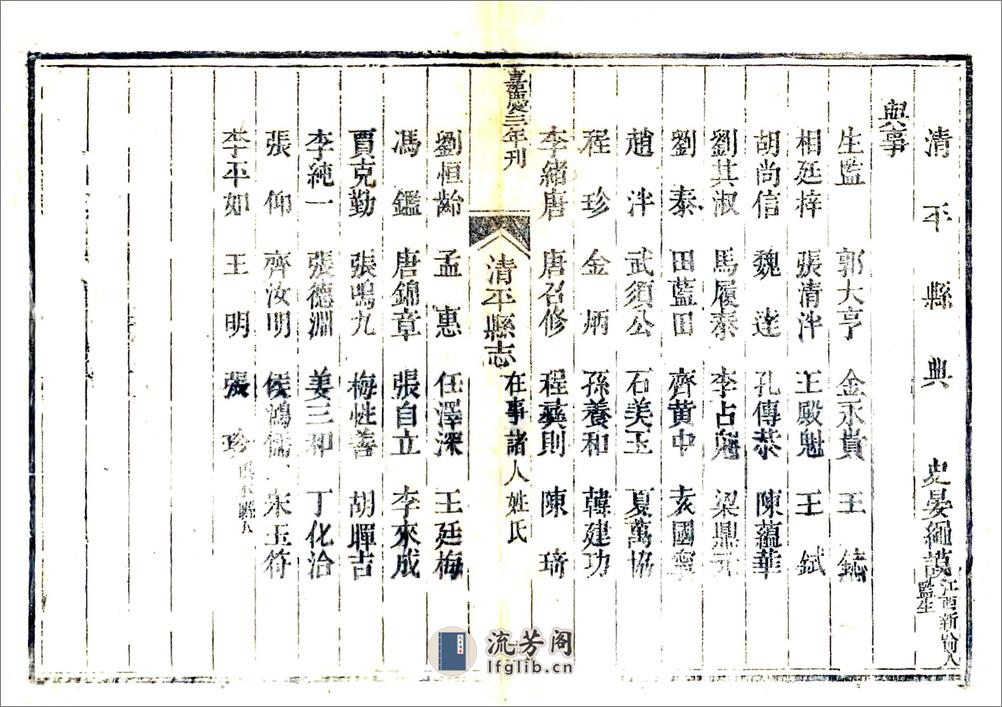 清平縣典史晏繩謨江西新喻人監生
與事
生監 郭大亨 金永貴 王
相廷梓 張清泮 王殿魁 王 鋱
胡尚信 魏 達 孔傳恭 陳蘊華
劉其淑 馬履泰 李占魁 梁鼎元
劉 泰 田藍田 齊黃中 袁國寧
趙 泮 武須公 石美玉 夏萬協
程 珍 金 炳 孫養和 韓建功
李緒唐 唐召修 程彝則 陳 琦
嘉慶三年刊 清平縣志 在事諸人姓氏
劉恒齡 孟 惠 任澤深 王廷梅
馮 鑑 唐錦章 張自立 李來成
賈克勤 張鳴九 梅性善 胡暉吉
李純一 張德淵 姜三和 丁化洽
張 仰 齊汝明 侯鴻儒 宋玉符
李平如 王 明 張 珍 縣人
流芳阁
lfglib.cn